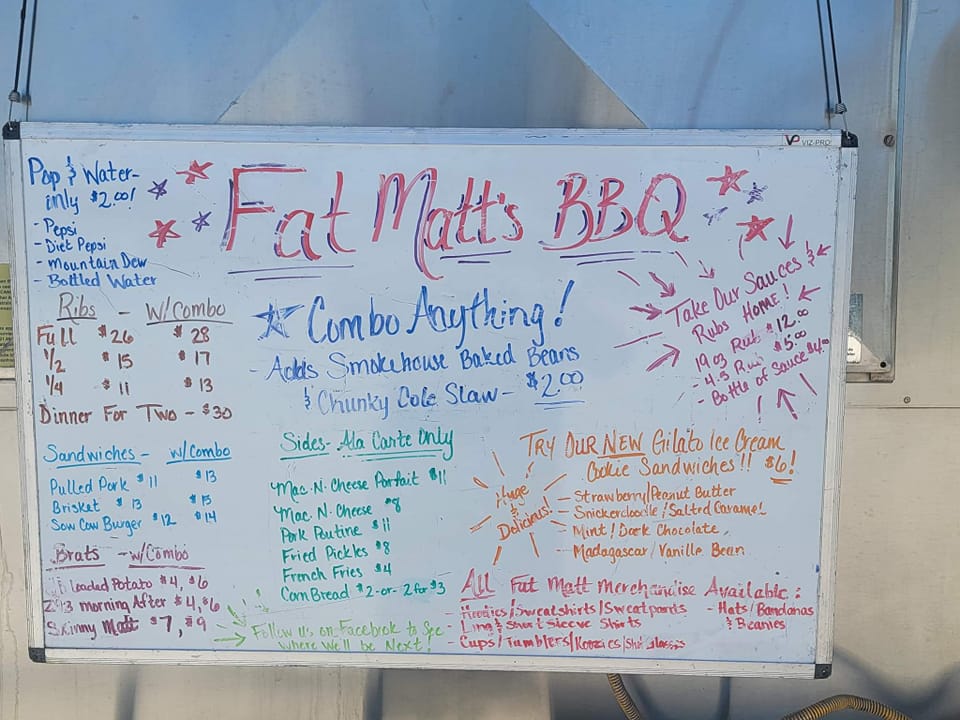 VP VIZ-PRO
Pop & Water-
only $2.00!
- Pepsi
- Diet Pepsi
- Mountain Dew
- Bottled Water
Fat Matt's BBQ
Ribs - W/Combo
Full $26 $28
1/2 $15 $17
1/4 $11 $13
Dinner For Two - $30
Combo Anything!
- Adds Smokehouse Baked Beans
& Chunky Cole Slaw - $2.00
Take Our Sauces &
Rubs Home!
19 oz Rub $12.00
- 4.5 Rub $5.00
- Bottle of Sauce $4.00
Sandwiches - w/Combo
Pulled Pork $11 $13
Brisket $13 $15
Sow Cow Burger $12 $14
Brats - w/Combo
Loaded Potato $4, $6
Morning After $4, $6
Skinny Matt $7, $9
Sides - Ala Carte Only
Mac-N-Cheese Parfait $11
Mac-N-Cheese $8
Pork Poutine $11
Fried Pickles $8
French Fries $4
Corn Bread $2 -or- 2 for $3
Follow us on Facebook to See
where we'll be Next!
Try Our New Gilato Ice Cream
Cookie Sandwiches!! $6!
Huge
&
Delicious!
- Strawberry/Peanut Butter
- Snickerdoodle/Salted Caramel
- Mint/Dark Chocolate
- Madagascar/Vanilla Bean
All Fat Matt Merchandise Available:
- Hoodies/Sweatshirts/Sweatpants
- Long & Short Sleeve Shirts
- Cups/Tumblers/Koozies/Shot Glasses
- Hats/Bandanas
& Beanies